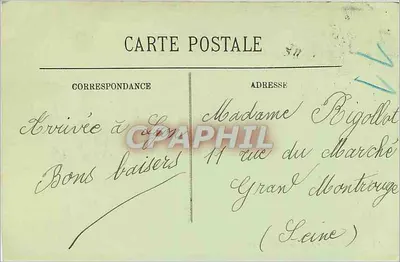 CARTE POSTALE
CORRESPONDANCE
Arrivée à
Bons baisers
ADRESSE
Madame Rigollot
11 rue du Marché
Grand Montrouge
(Seine)
CPAPHIL